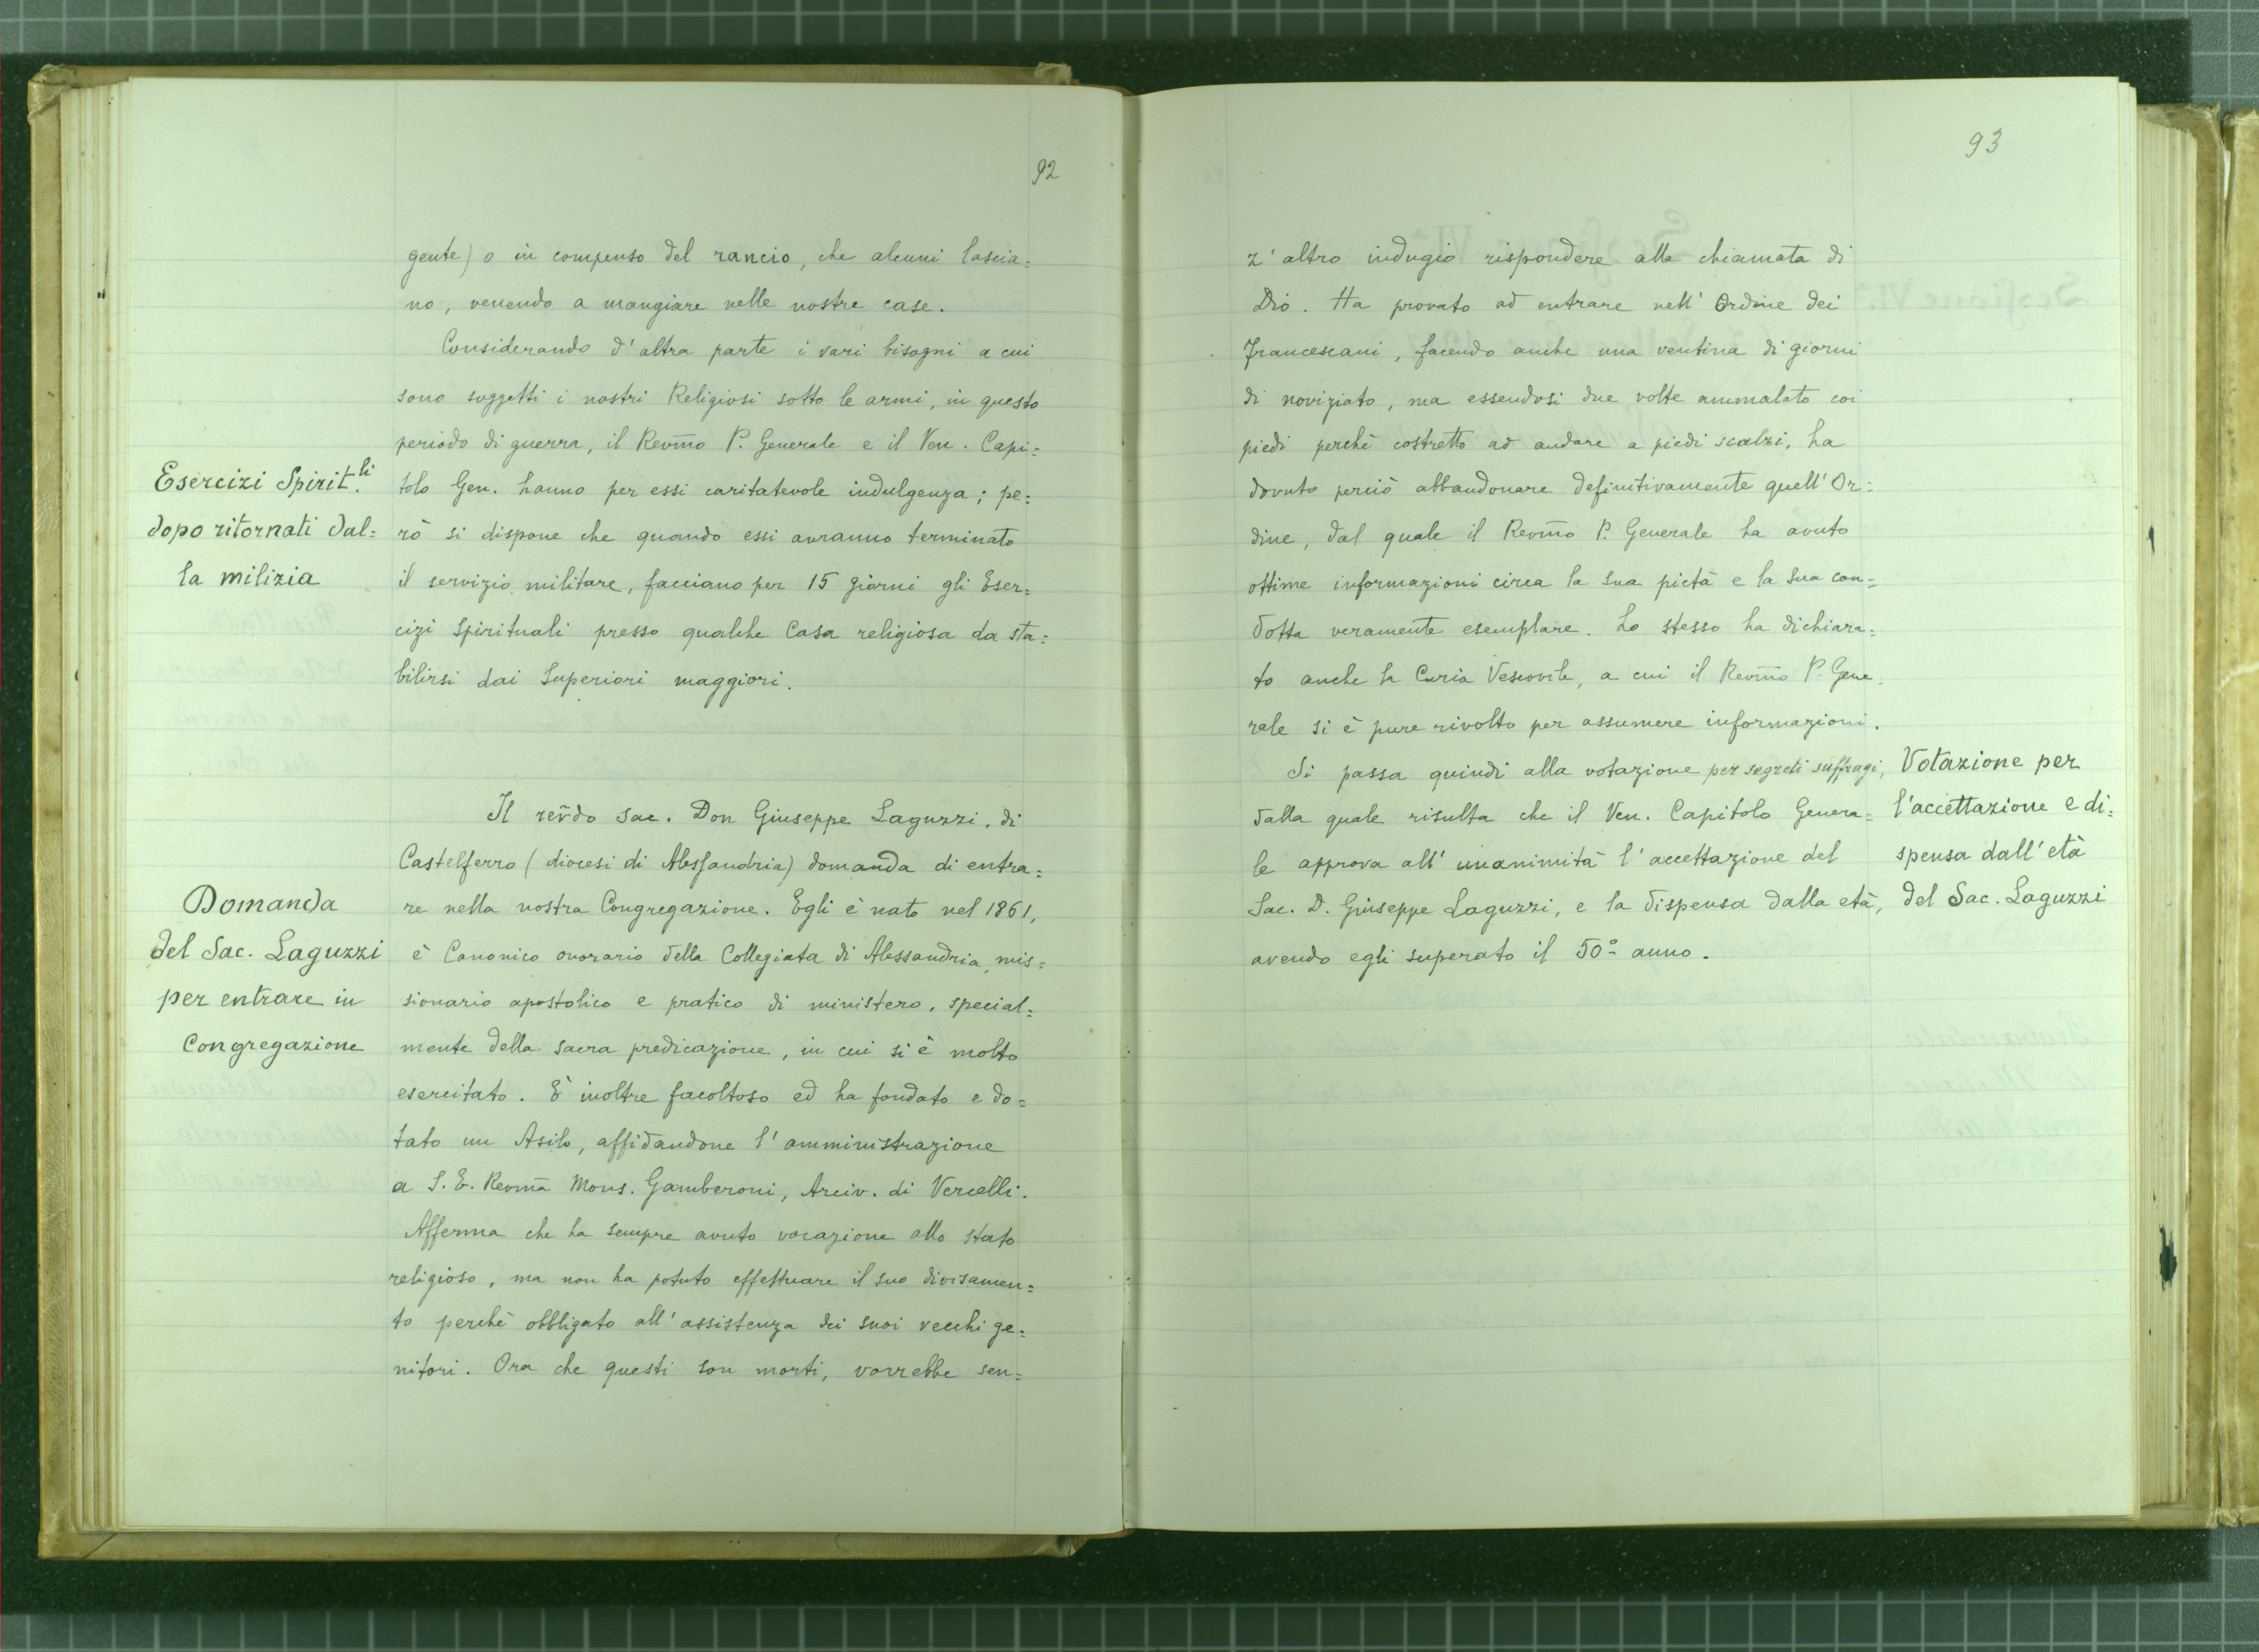 92
gente) o in compenso del rancio, che alcuni lascia=
no, venendo a mangiare nelle nostre case.
Considerando d'altra parte i vari bisogni a cui
sono soggetti i nostri Religiosi sotto le armi, in questo
periodo di guerra, il Revm̄o P. Generale e il Ven. Capi=
tolo Gen. hanno per essi caritatevole indulgenza; pe=
rò si dispone che quando essi avranno terminato
il servizio militare, facciano per 15 giorni gli Eser=
cizi Spirituali presso qualche Casa religiosa da sta=
bilirsi dai Superiori maggiori.
Esercizi Spirit.li
dopo ritornati dal=
la milizia
Il rev̄do sac. Don Giuseppe Laguzzi, di
Castelferro (diocesi di Alessandria) domanda di entra=
re nella nostra Congregazione. Egli è nato nel 1861,
è Canonico onorario della Collegiata di Alessandria, mis=
sionario apostolico e pratico di ministero, special=
mente della sacra predicazione, in cui si è molto
esercitato. È inoltre facoltoso ed ha fondato e do=
tato un Asilo, affidandone l'amministrazione
a S. E. Revm̄a Mons. Gamberoni, Arciv. di Vercelli.
Afferma che ha sempre avuto vocazione allo stato
religioso, ma non ha potuto effettuare il suo divisamen=
to perchè obbligato all'assistenza dei suoi vecchi ge=
nitori. Ora che questi son morti, vorrebbe sen=
Domanda
del Sac. Laguzzi
per entrare in
Congregazione
93
z'altro indugio rispondere alla chiamata di
Dio. Ha provato ad entrare nell'Ordine dei
Francescani, facendo anche una ventina di giorni
di noviziato, ma essendosi due volte ammalato coi
piedi perchè costretto ad andare a piedi scalzi, ha
dovuto perciò abbandonare definitivamente quell'Or=
dine, dal quale il Revm̄o P. Generale ha avuto
ottime informazioni circa la sua pietà e la sua con=
dotta veramente esemplare. Lo stesso ha dichiara=
to anche la Curia Vescovile, a cui il Revm̄o P. Gene=
rale si è pure rivolto per assumere informazioni.
Si passa quindi alla votazione per segreti suffragi,
dalla quale risulta che il Ven. Capitolo Genera=
le approva all'unanimità l'accettazione del
Sac. D. Giuseppe Laguzzi, e la dispensa dalla età,
avendo egli superato il 50º anno.
Votazione per
l'accettazione e di=
spensa dall'età
del Sac. Laguzzi